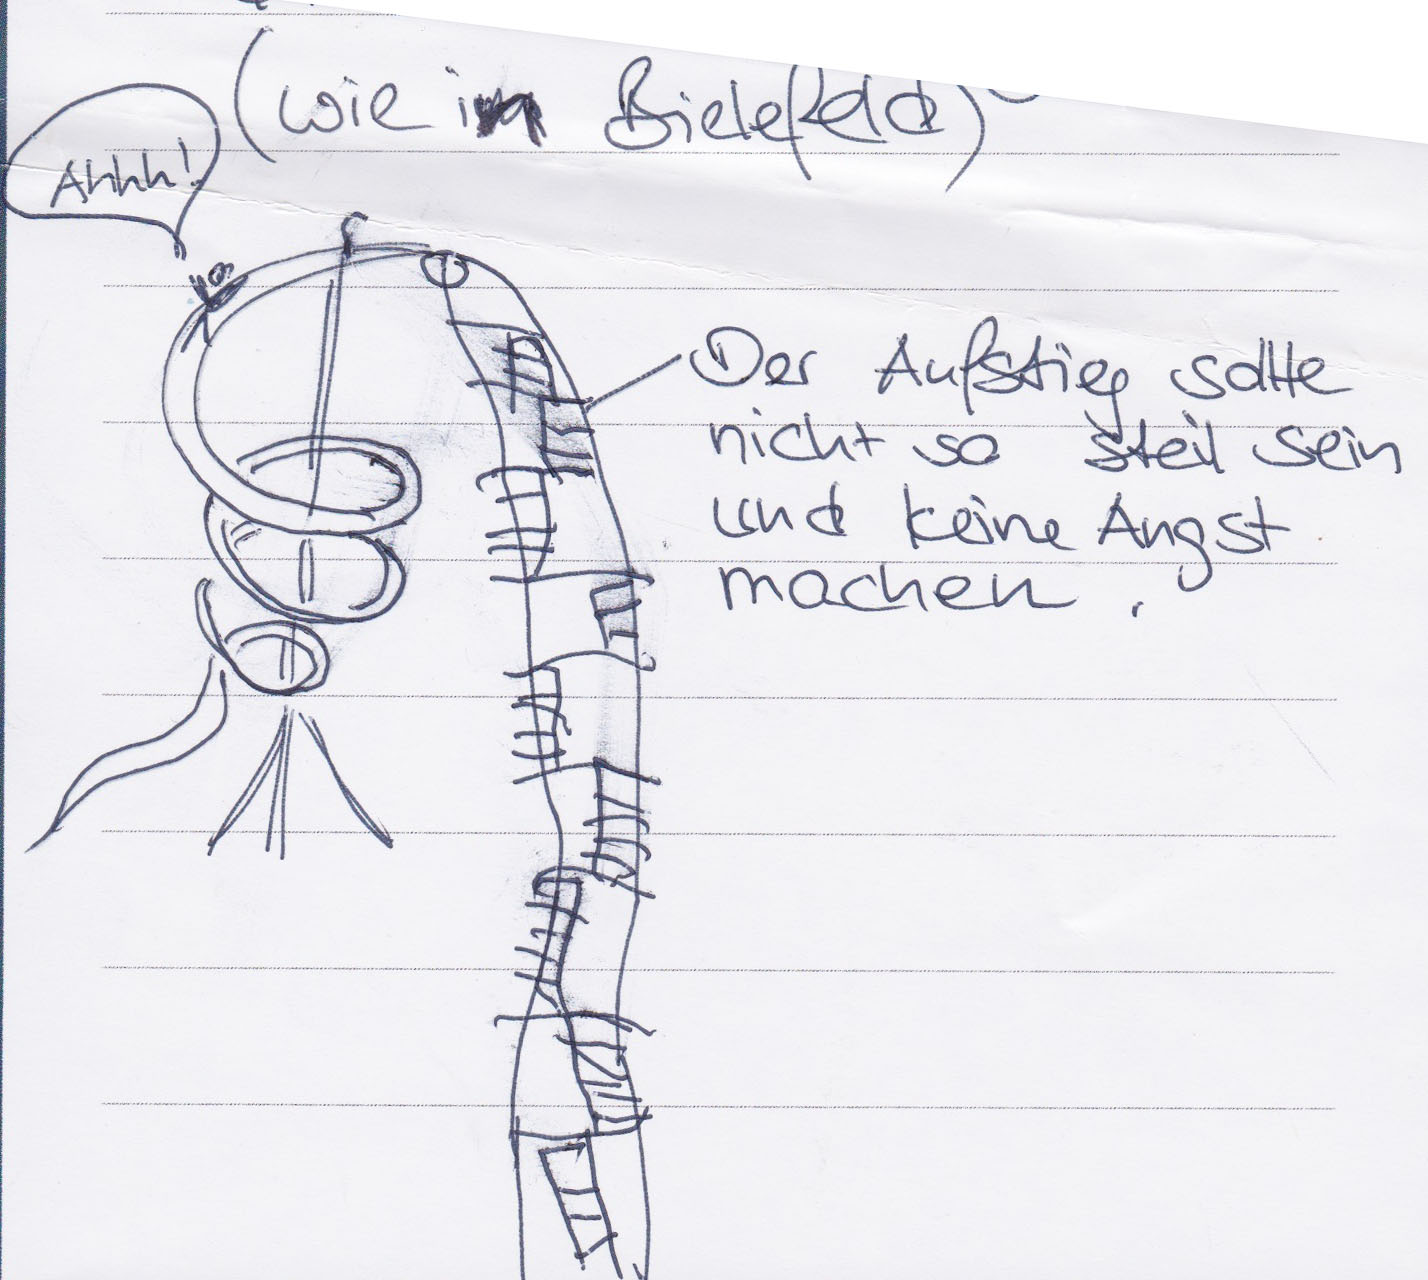 (wie in Bielefeld)
Ahhh!
Der Aufstieg sollte
nicht so steil sein
und keine Angst
machen.